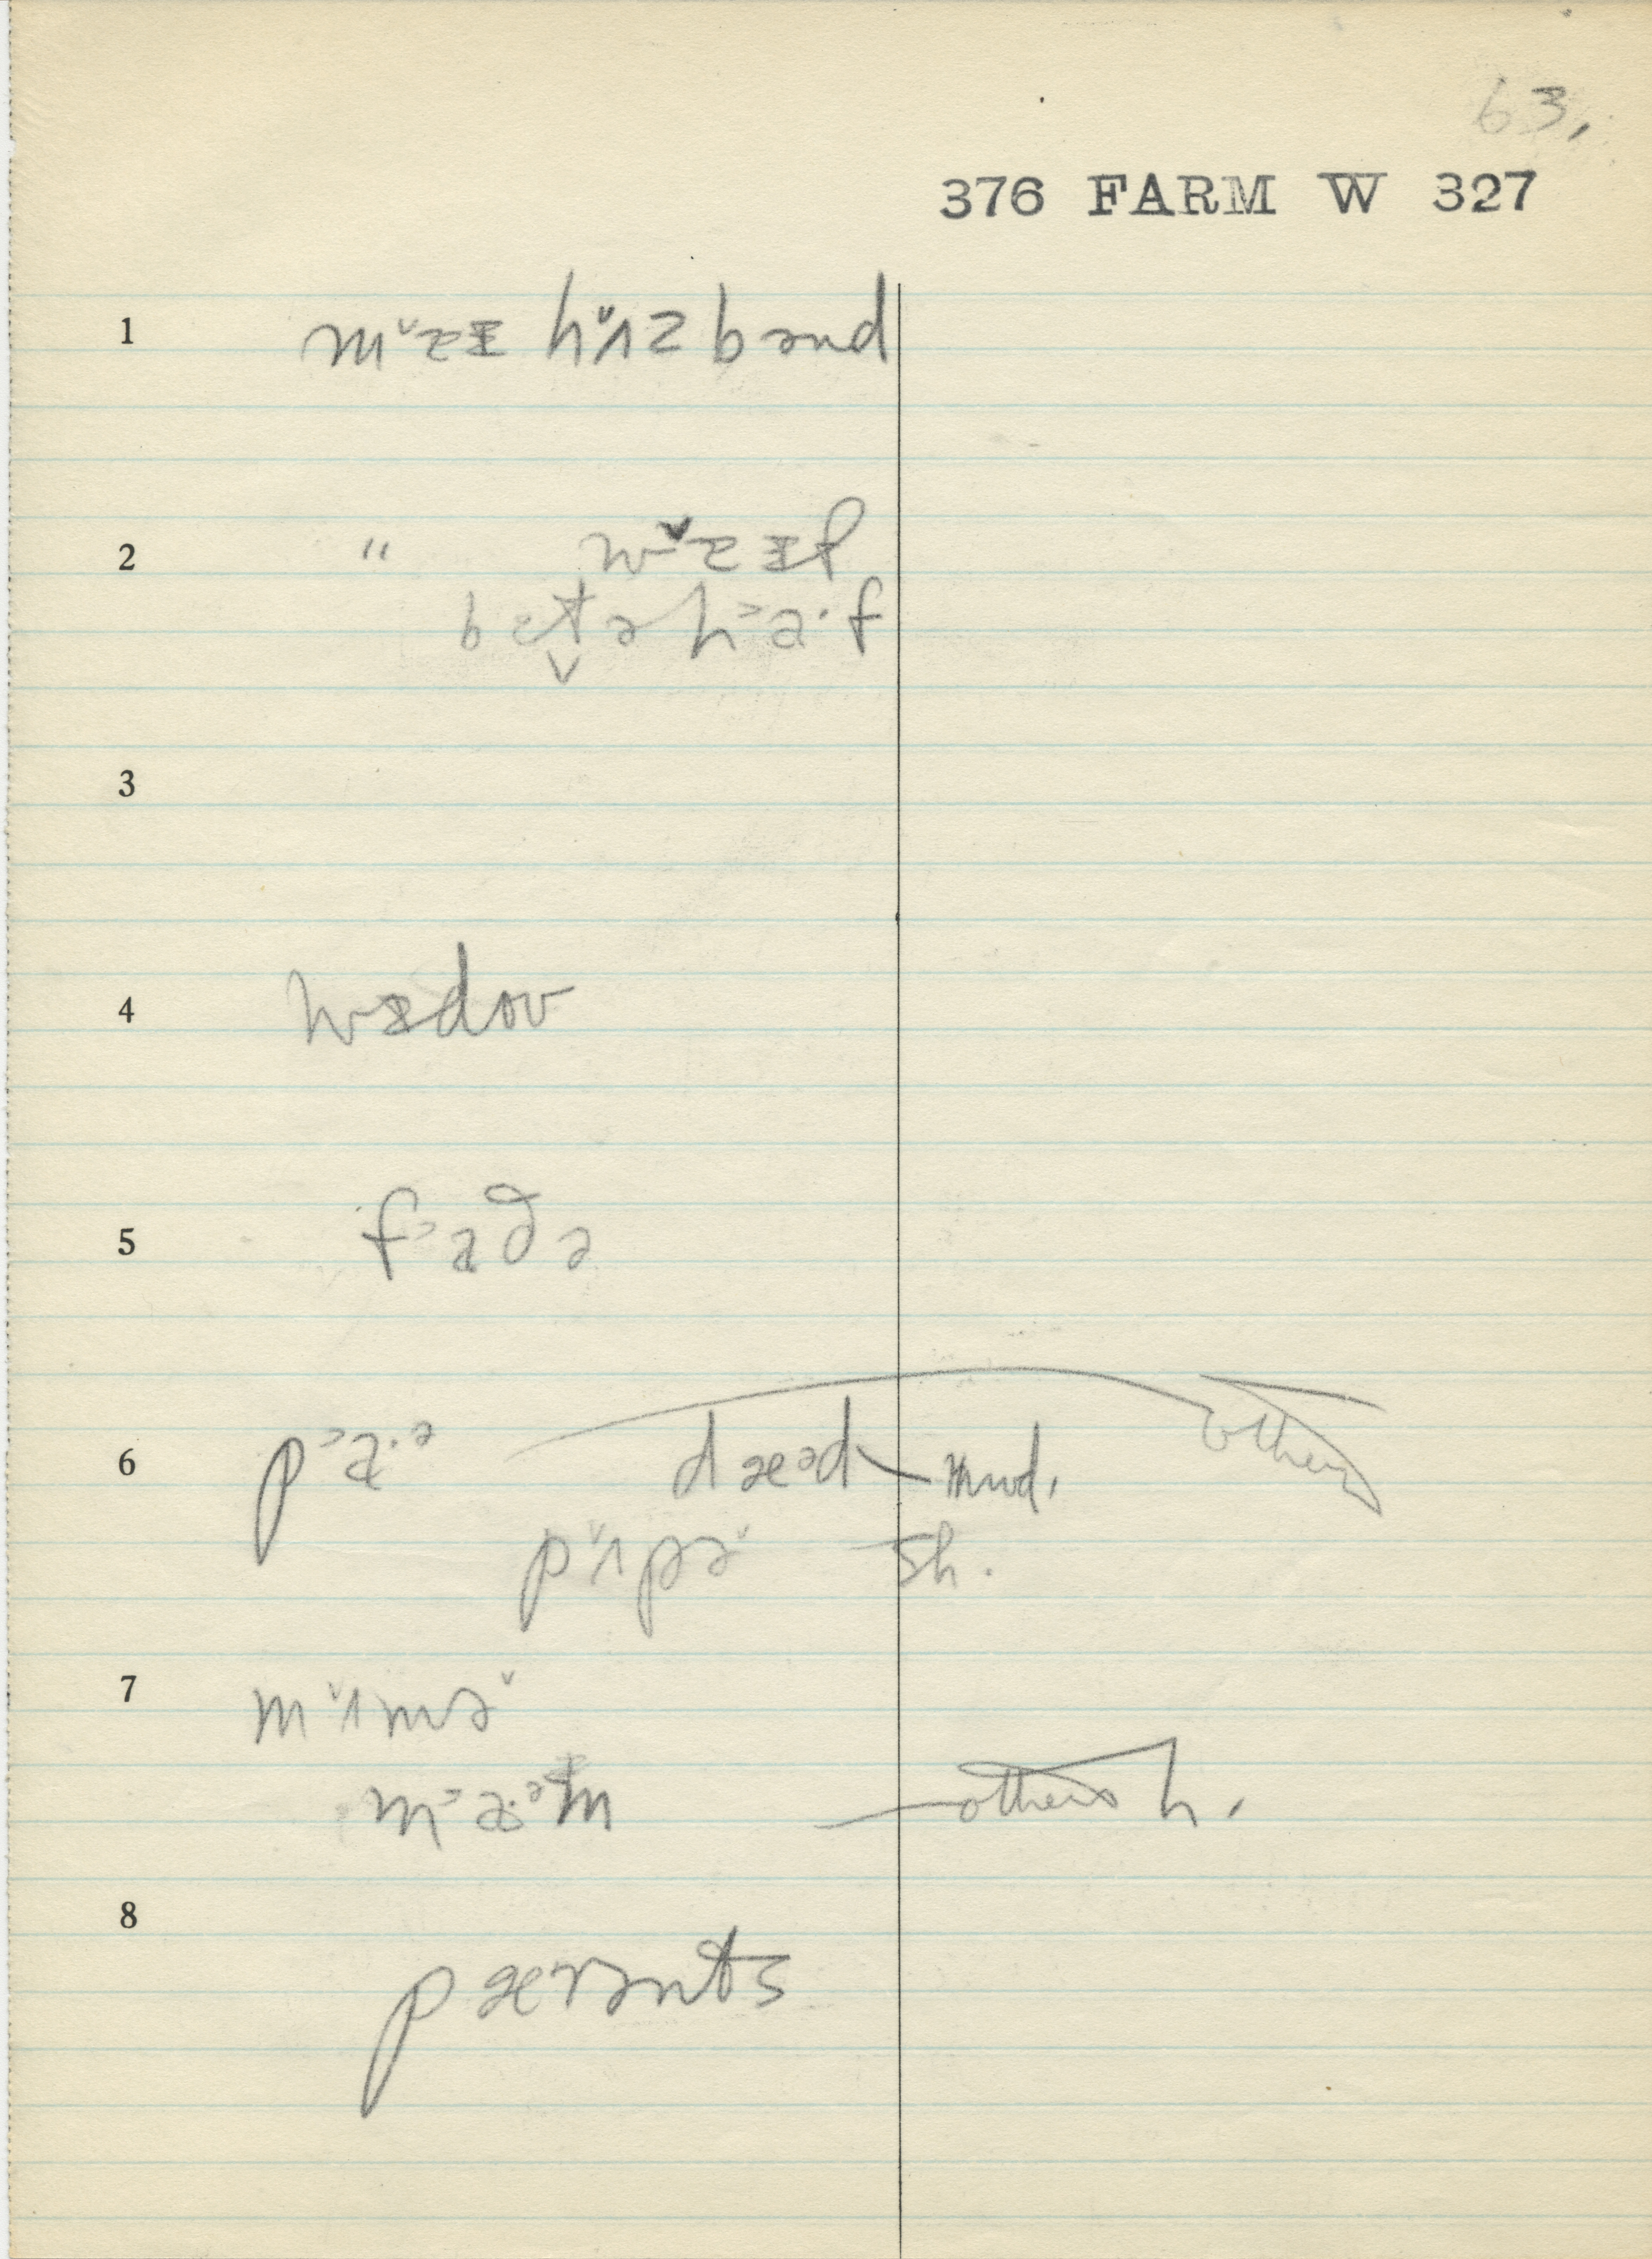 63.
376 FARM W 327
1 m˅ɛɪ hʌ˅zbənd
2 " w˅ɛɪf
bɛtə h˃a·f
3
4 wɪdoʊ
5 f˃aðə
6 p˃a·ə dæəd mod. others
pʌ˅pə˅ sh.
7 mʌ˅mə˅
m˃a·əm others h.
8
pærənts